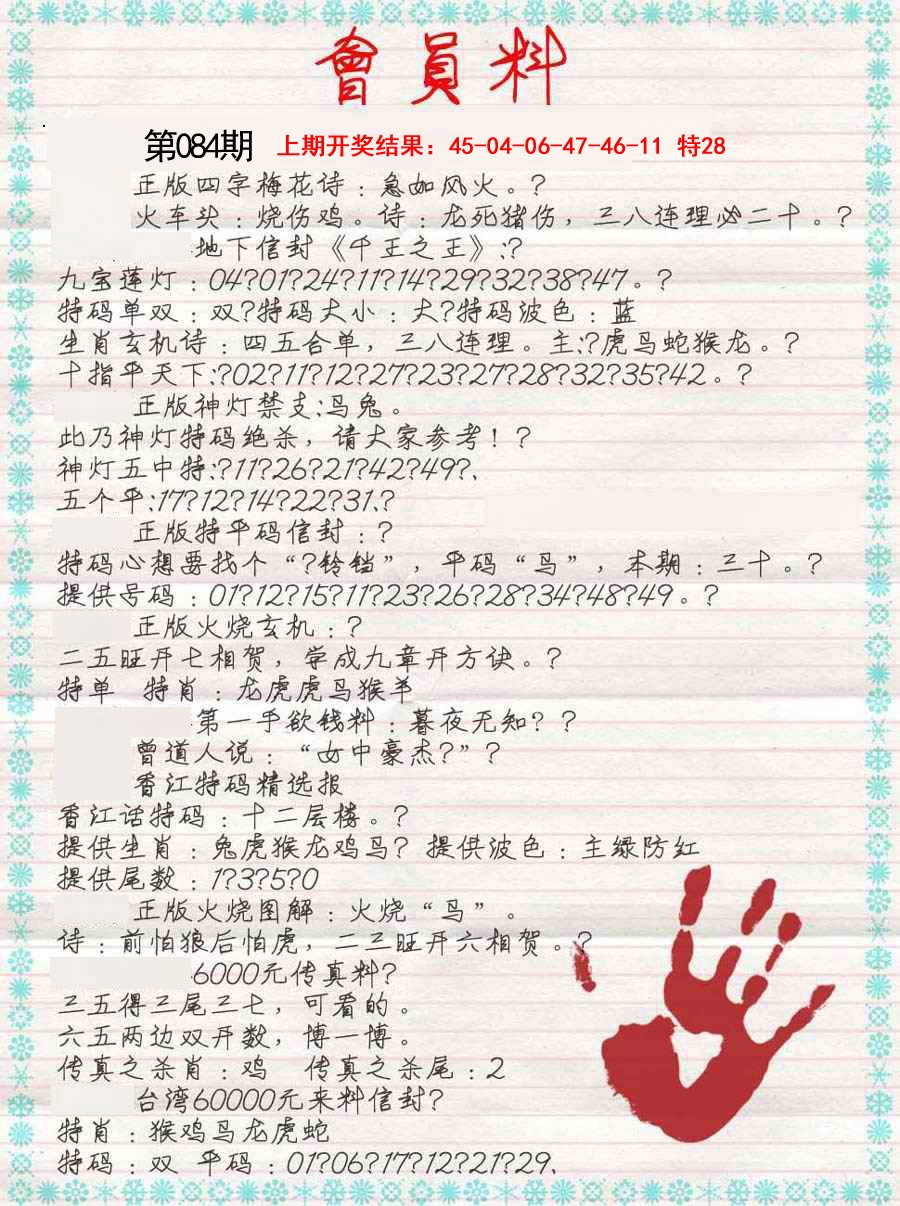 會員料
第084期 上期开奖结果：45-04-06-47-46-11 特28
正版四字梅花诗：急如风火。?
火车头：烧伤鸡。诗：龙死猪伤，三八连理必二十。?
地下信封《千王之王》:?
九宝莲灯：04?01?24?11?14?29?32?38?47。?
特码单双：双?特码大小：大?特码波色：蓝
生肖玄机诗：四五合单，三八连理。主:?虎马蛇猴龙。?
十指平天下:?02?11?12?27?23?27?28?32?35?42。?
正版神灯禁支:马兔。
此乃神灯特码绝杀，请大家参考！?
神灯五中特:?11?26?21?42?49?.
五个平:17?12?14?22?31.?
正版特平码信封：?
特码心想要找个“?铃铛”，平码“马”，本期：三十。?
提供号码：01?12?15?11?23?26?28?34?48?49。?
正版火烧玄机：?
二五旺开七相贺，学成九章开方诀。?
特单 特肖：龙虎虎马猴羊
第一手欲钱料：暮夜无知？?
曾道人说：“女中豪杰?”?
香江特码精选报
香江话特码：十二层楼。?
提供生肖：兔虎猴龙鸡马? 提供波色：主绿防红
提供尾数：1?3?5?0
正版火烧图解：火烧“马”。
诗：前怕狼后怕虎，二三旺开六相贺。?
6000元传真料?
三五得三尾三七，可看的。
六五两边双开数，博一博。
传真之杀肖：鸡 传真之杀尾：2
台湾60000元来料信封?
特肖：猴鸡马龙虎蛇
特码：双 平码：01?06?17?12?21?29.